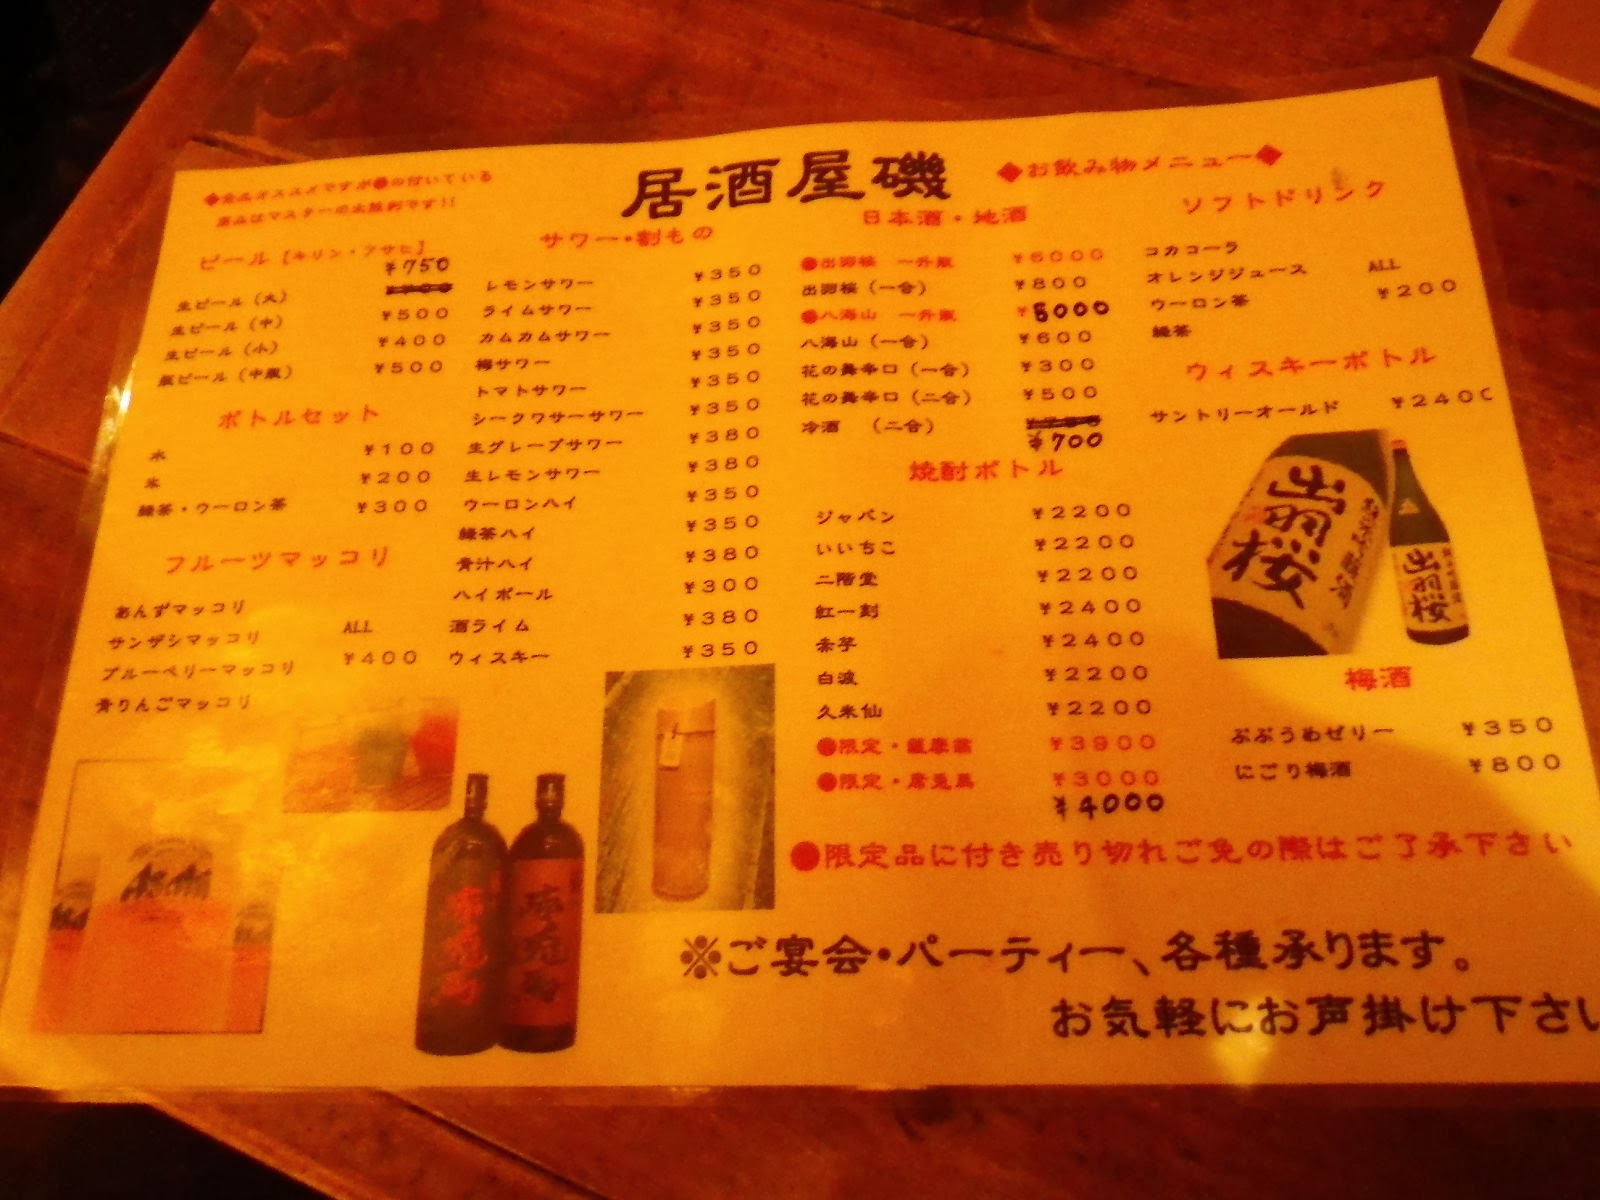 居酒屋磯
◆お飲み物メニュー◆
◆全品オススメですが●の付いている
品はマスターの大好物です!!
ビール【キリン・アサヒ】
生ビール（大） ¥750
生ビール（中） ¥500
生ビール（小） ¥400
瓶ビール（中瓶） ¥500
ボトルセット
水 ¥100
氷 ¥200
緑茶・ウーロン茶 ¥300
フルーツマッコリ
あんずマッコリ
サンザシマッコリ
ブルーベリーマッコリ
青りんごマッコリ
ALL
¥400
サワー・割もの
レモンサワー ¥350
ライムサワー ¥350
カムカムサワー ¥350
梅サワー ¥350
トマトサワー ¥350
シークワサーサワー ¥350
生グレープサワー ¥380
生レモンサワー ¥380
ウーロンハイ ¥350
緑茶ハイ ¥350
青汁ハイ ¥380
ハイボール ¥300
酒ライム ¥380
ウィスキー ¥350
日本酒・地酒
●出羽桜 一升瓶 ¥6000
出羽桜（一合） ¥800
●八海山 一升瓶 ¥5000
八海山（一合） ¥600
花の舞辛口（一合） ¥300
花の舞辛口（二合） ¥500
冷酒 （二合） ¥700
焼酎ボトル
ジャパン ¥2200
いいちこ ¥2200
二階堂 ¥2200
紅一刻 ¥2400
赤芋 ¥2400
白波 ¥2200
久米仙 ¥2200
●限定・ ¥3900
●限定・赤兎馬 ¥3000
¥4000
ソフトドリンク
コカコーラ
オレンジジュース
ウーロン茶
緑茶
ALL
¥200
ウィスキーボトル
サントリーオールド ¥2400
出羽桜
出羽桜
梅酒
ぷぷうめゼリー ¥350
にごり梅酒 ¥800
●限定品に付き売り切れご免の際はご了承下さい
※ご宴会・パーティー、各種承ります。
お気軽にお声掛け下さい
赤兎馬
赤兎馬